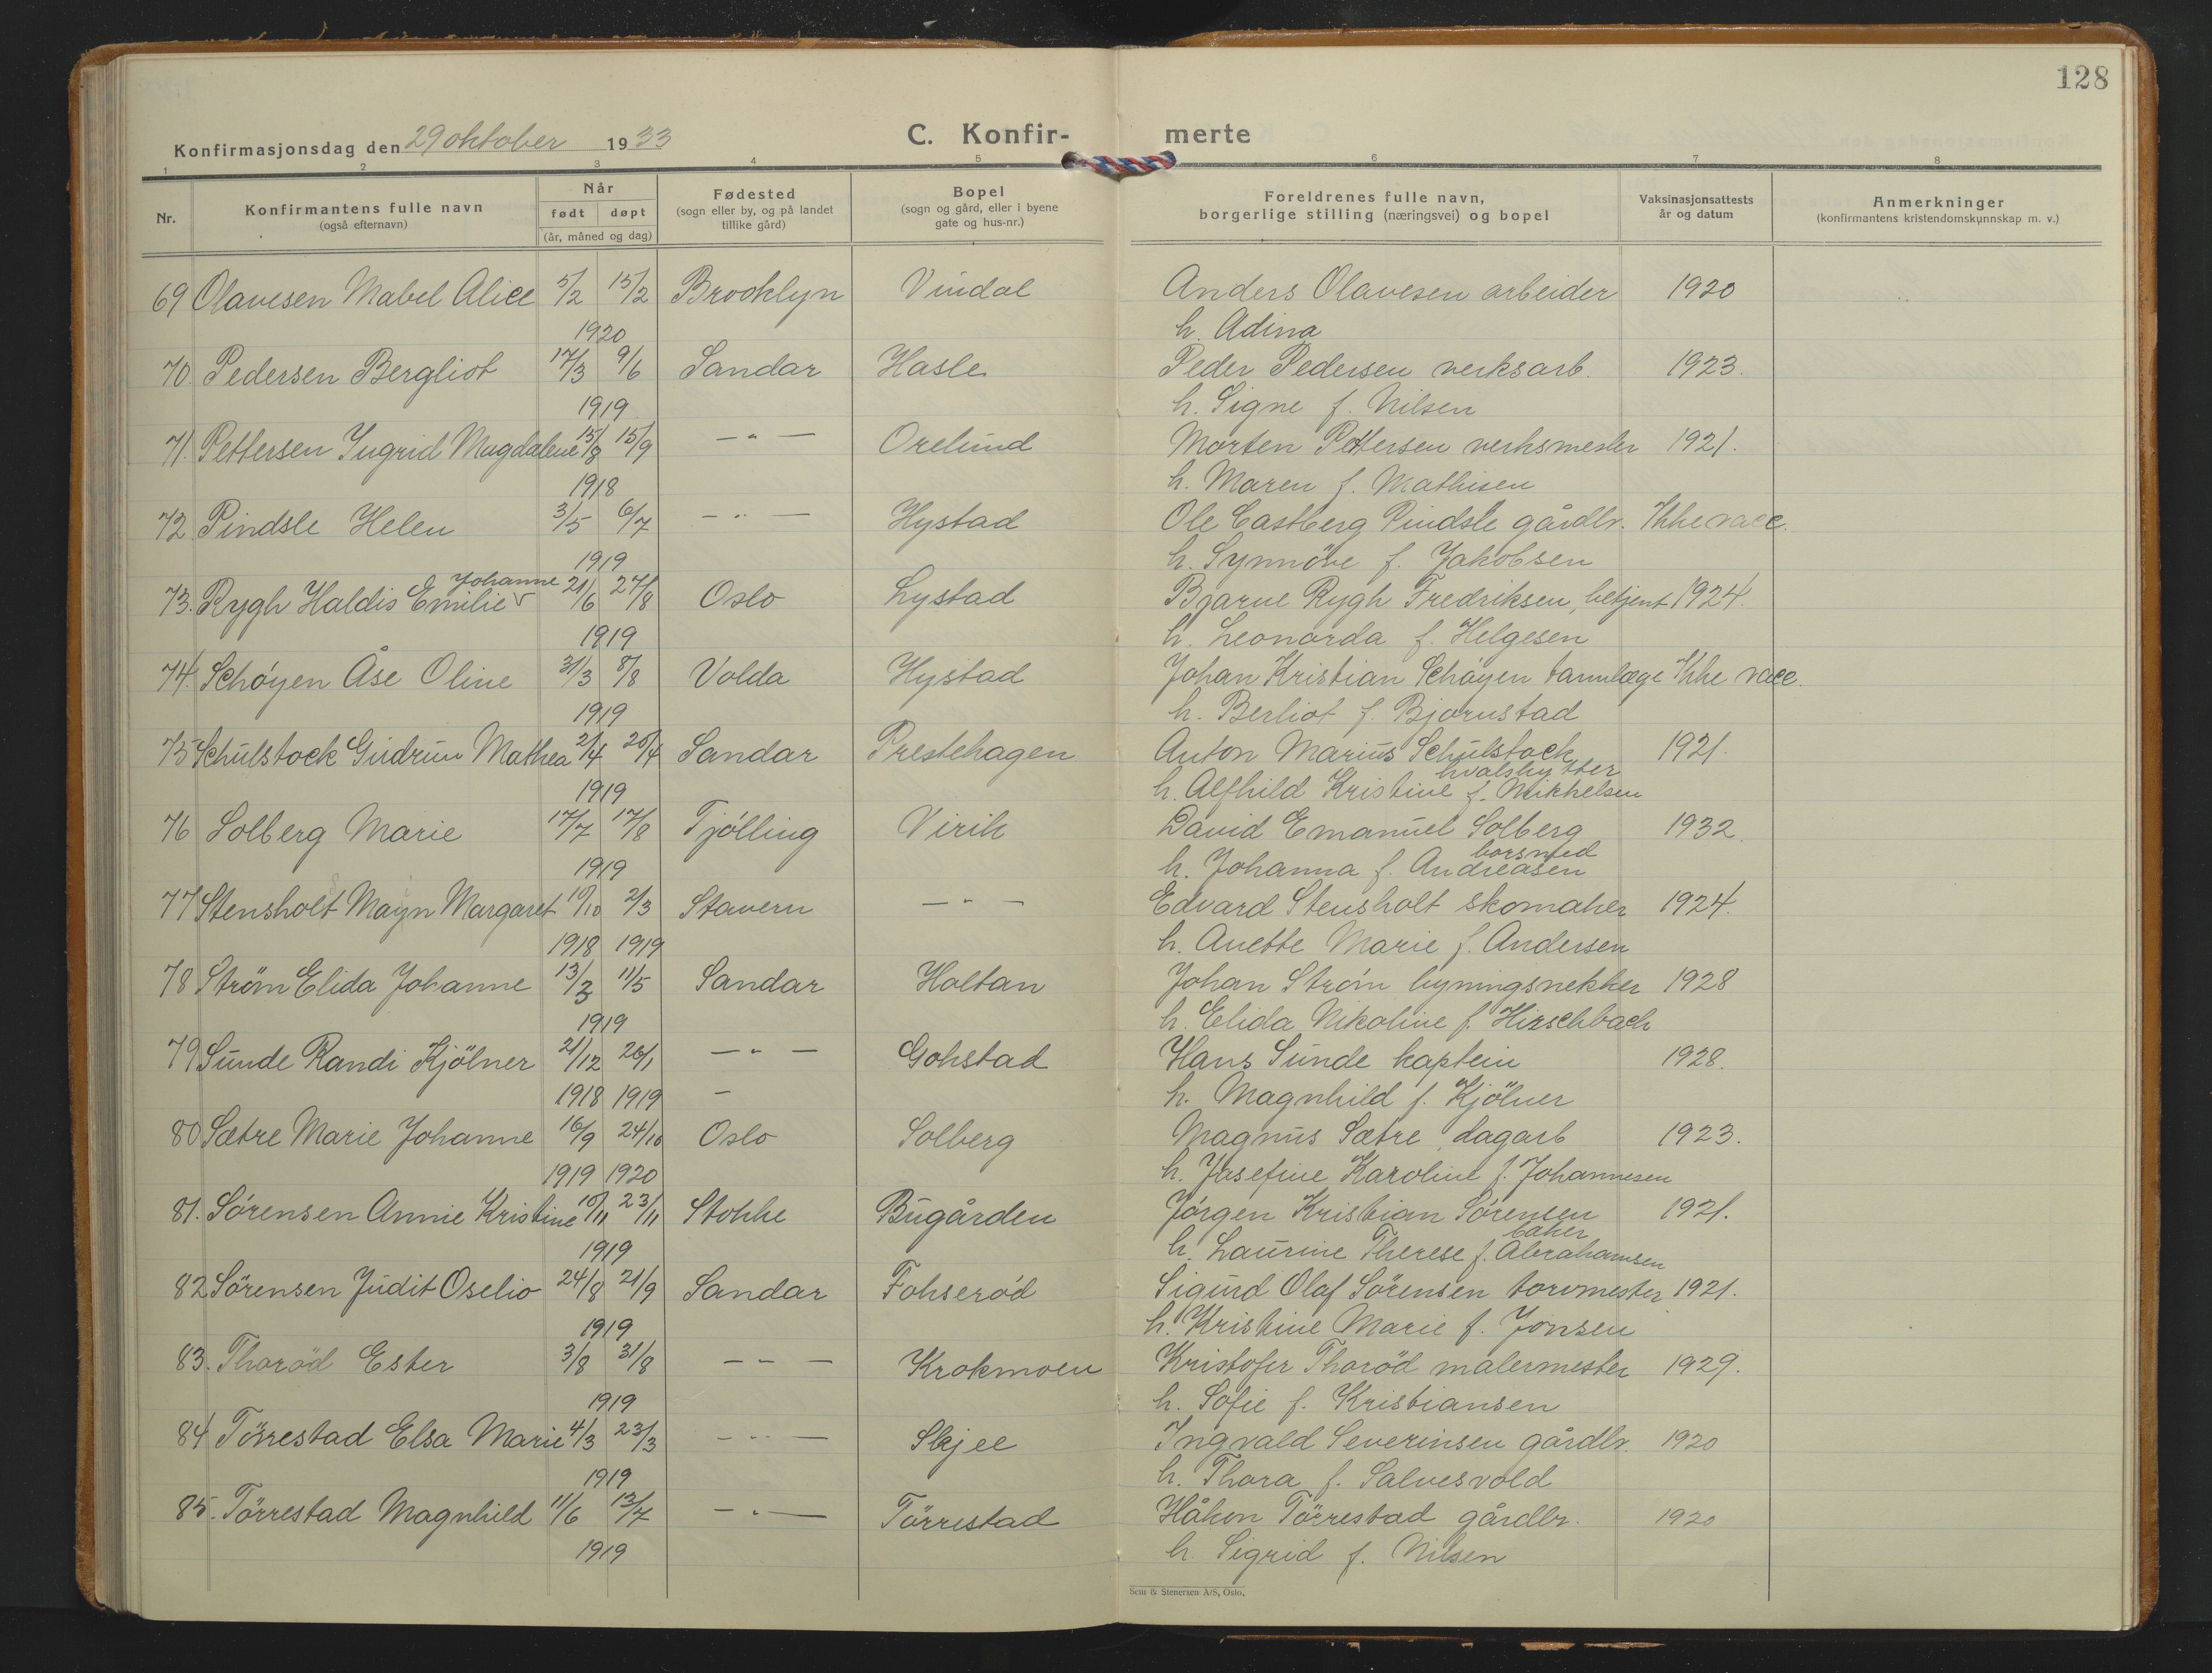 128
Konfirmasjonsdag den 29 oktober 1933
C. Konfir- merte
1 2 3 4 5 6 7 8
Nr. Konfirmantens fulle navn (også efternavn) Når født døpt (år, måned og dag) Fødested (sogn eller by, og på landet tillike gård) Bopel (sogn og gård, eller i byene gate og hus-nr.) Foreldrenes fulle navn, borgerlige stilling (næringsvei) og bopel Vaksinasjonsattests år og datum Anmerkninger (konfirmantens kristendomskunnskap m. v.)
69 Olavesen Mabel Alice 5/2 15/2 Brooklyn Vindal Anders Olavesen arbeider 1920
1920 h. Adina
70. Pedersen Bergliot 17/3 9/6 Sandar Hasle Peder Pedersen verksarb. 1923.
1919 h. Signe f. Nilsen
71. Pettersen Ingrid Magdalene 15/8 15/9 — " — Orelund Morten Pettersen verksmester 1921.
1918 h. Maren f. Mathisen
72 Pindsle Helen 3/5 6/7 — " — Hystad Ole Castberg Pindsle gårdbr. Ikke vacc.
1919 h. Synnöve f. Jakobsen
73. Rygh Haldis Emilie Johanne 21/6 27/8 Oslo Lystad Bjarne Rygh Fredriksen, betjent 1924.
1919 h. Leonarda f. Helgesen
74. Schøyen Åse Oline 31/3 8/8 Volda Hystad Johan Kristian Schøyen tannlæge Ikke vacc.
1919 h. Berliot f. Bjørnstad
75 Schulstock Gudrun Mathea 2/4 20/4 Sandar Prestehagen Anton Marius Schulstock hvalskytter 1921.
1919 h. Alfhild Kristine f. Mikhelsen
76 Solberg Marie 17/7 17/8 Tjølling Virik David Emanuel Solberg 1932.
1919 h. Johanna f. Andreasen
77 Stensholt Mayn Margaret 10/10 2/3 Stavern — " — Edvard Stensholt skomaker 1924.
1918 1919 h. Anette Marie f. Andersen
78 Strøm Elida Johanne 13/3 11/5 Sandar Haltan Johan Strøm bygningsnekker 1928
1919 h. Elida Nikoline f. Hirschbach
79 Sunde Randi Kjölner 21/12 26/1 — " — Gokstad Hans Sunde kaptein 1928.
1918 1919 — h. Magnhild f. Kjölner
80 Sætre Marie Johanne 16/9 24/10 Oslo Solberg Magnus Sætre dagarb 1923.
1919 1920 h. Josefine Karoline f. Johannesen
81. Sörensen Annie Kristine 10/11 23/11 Stokke Bugården Jörgen Kristian Sörensen baker 1921.
1919 h. Laurine Therese f. Abrahamsen
82 Sörensen Judit Oselio 24/8 21/9 Sandar Fokserød Sigurd Olaf Sörensen tormester 1921.
1919 h. Kristine Marie f. Jonsen
83. Thoröd Ester 3/8 31/8 — " — Krokmoen Kristofer Thoröd malermester 1929.
1919 h. Sofie f. Kristiansen
84 Törrestad Elsa Marie 4/3 23/3 — " — Skjee Ingvald Severinsen gårdbr. 1920
1919 h. Thora f. Salvesvold
85. Törrestad Magnhild 11/6 13/7 — " — Törrestad Håkon Törrestad gårdbr. 1920
1919 h. Sigrid f. Nilsen
Sem & Stenersen A/S, Oslo.